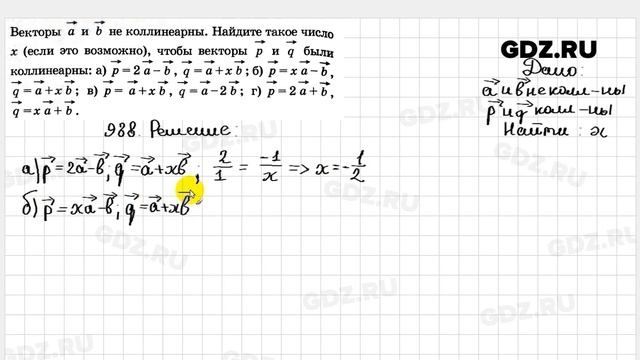 Векторы a⃗ и b⃗ не коллинеарны. Найдите такое число
x (если это возможно), чтобы векторы p⃗ и q⃗ были
коллинеарны: а) p⃗ = 2a⃗ − b⃗, q⃗ = a⃗ + xb⃗; б) p⃗ = xa⃗ − b⃗,
q⃗ = a⃗ + xb⃗; в) p⃗ = a⃗ + xb⃗, q⃗ = a⃗ − 2b⃗; г) p⃗ = 2a⃗ + b⃗,
q⃗ = xa⃗ + b⃗.
GDZ.RU
Дано:
a⃗ и b⃗ не колл-ны
p⃗ и q⃗ колл-ны
Найти: x
988. Решение:
а) p⃗ = 2a⃗ − b⃗; q⃗ = a⃗ + xb⃗; 2/1 = −1/x => x = −1/2
б) p⃗ = xa⃗ − b⃗; q⃗ = a⃗ + xb⃗
GDZ.RU
GDZ.RU
GDZ.RU
GDZ.RU
GDZ.RU